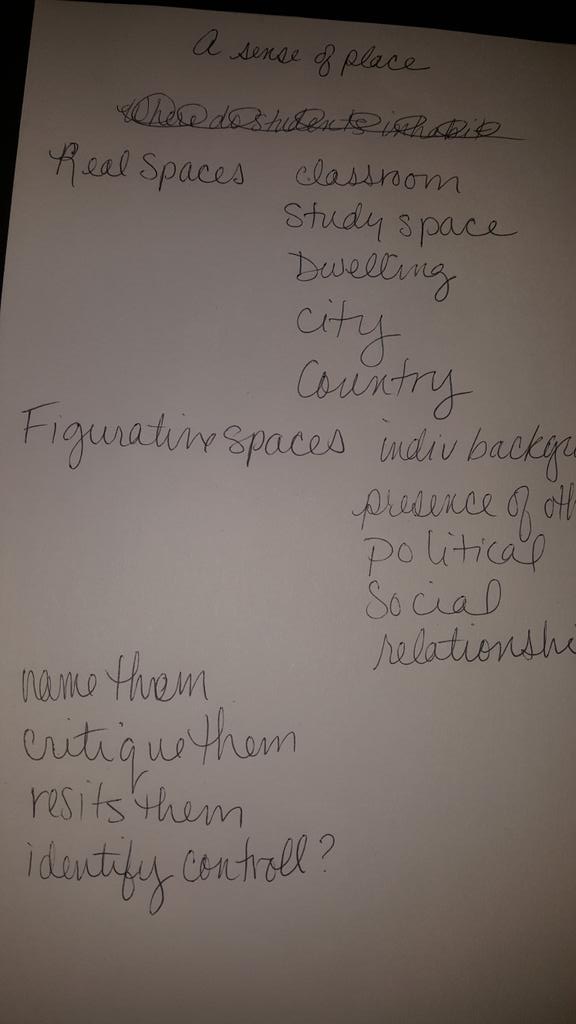 A sense of place
Where do students inhabit
Real Spaces classroom
Study space
Dwelling
City
Country
Figurative spaces indiv backgr
presence of oth
political
Social
relationshi
name them
critique them
resits them
identify controll?